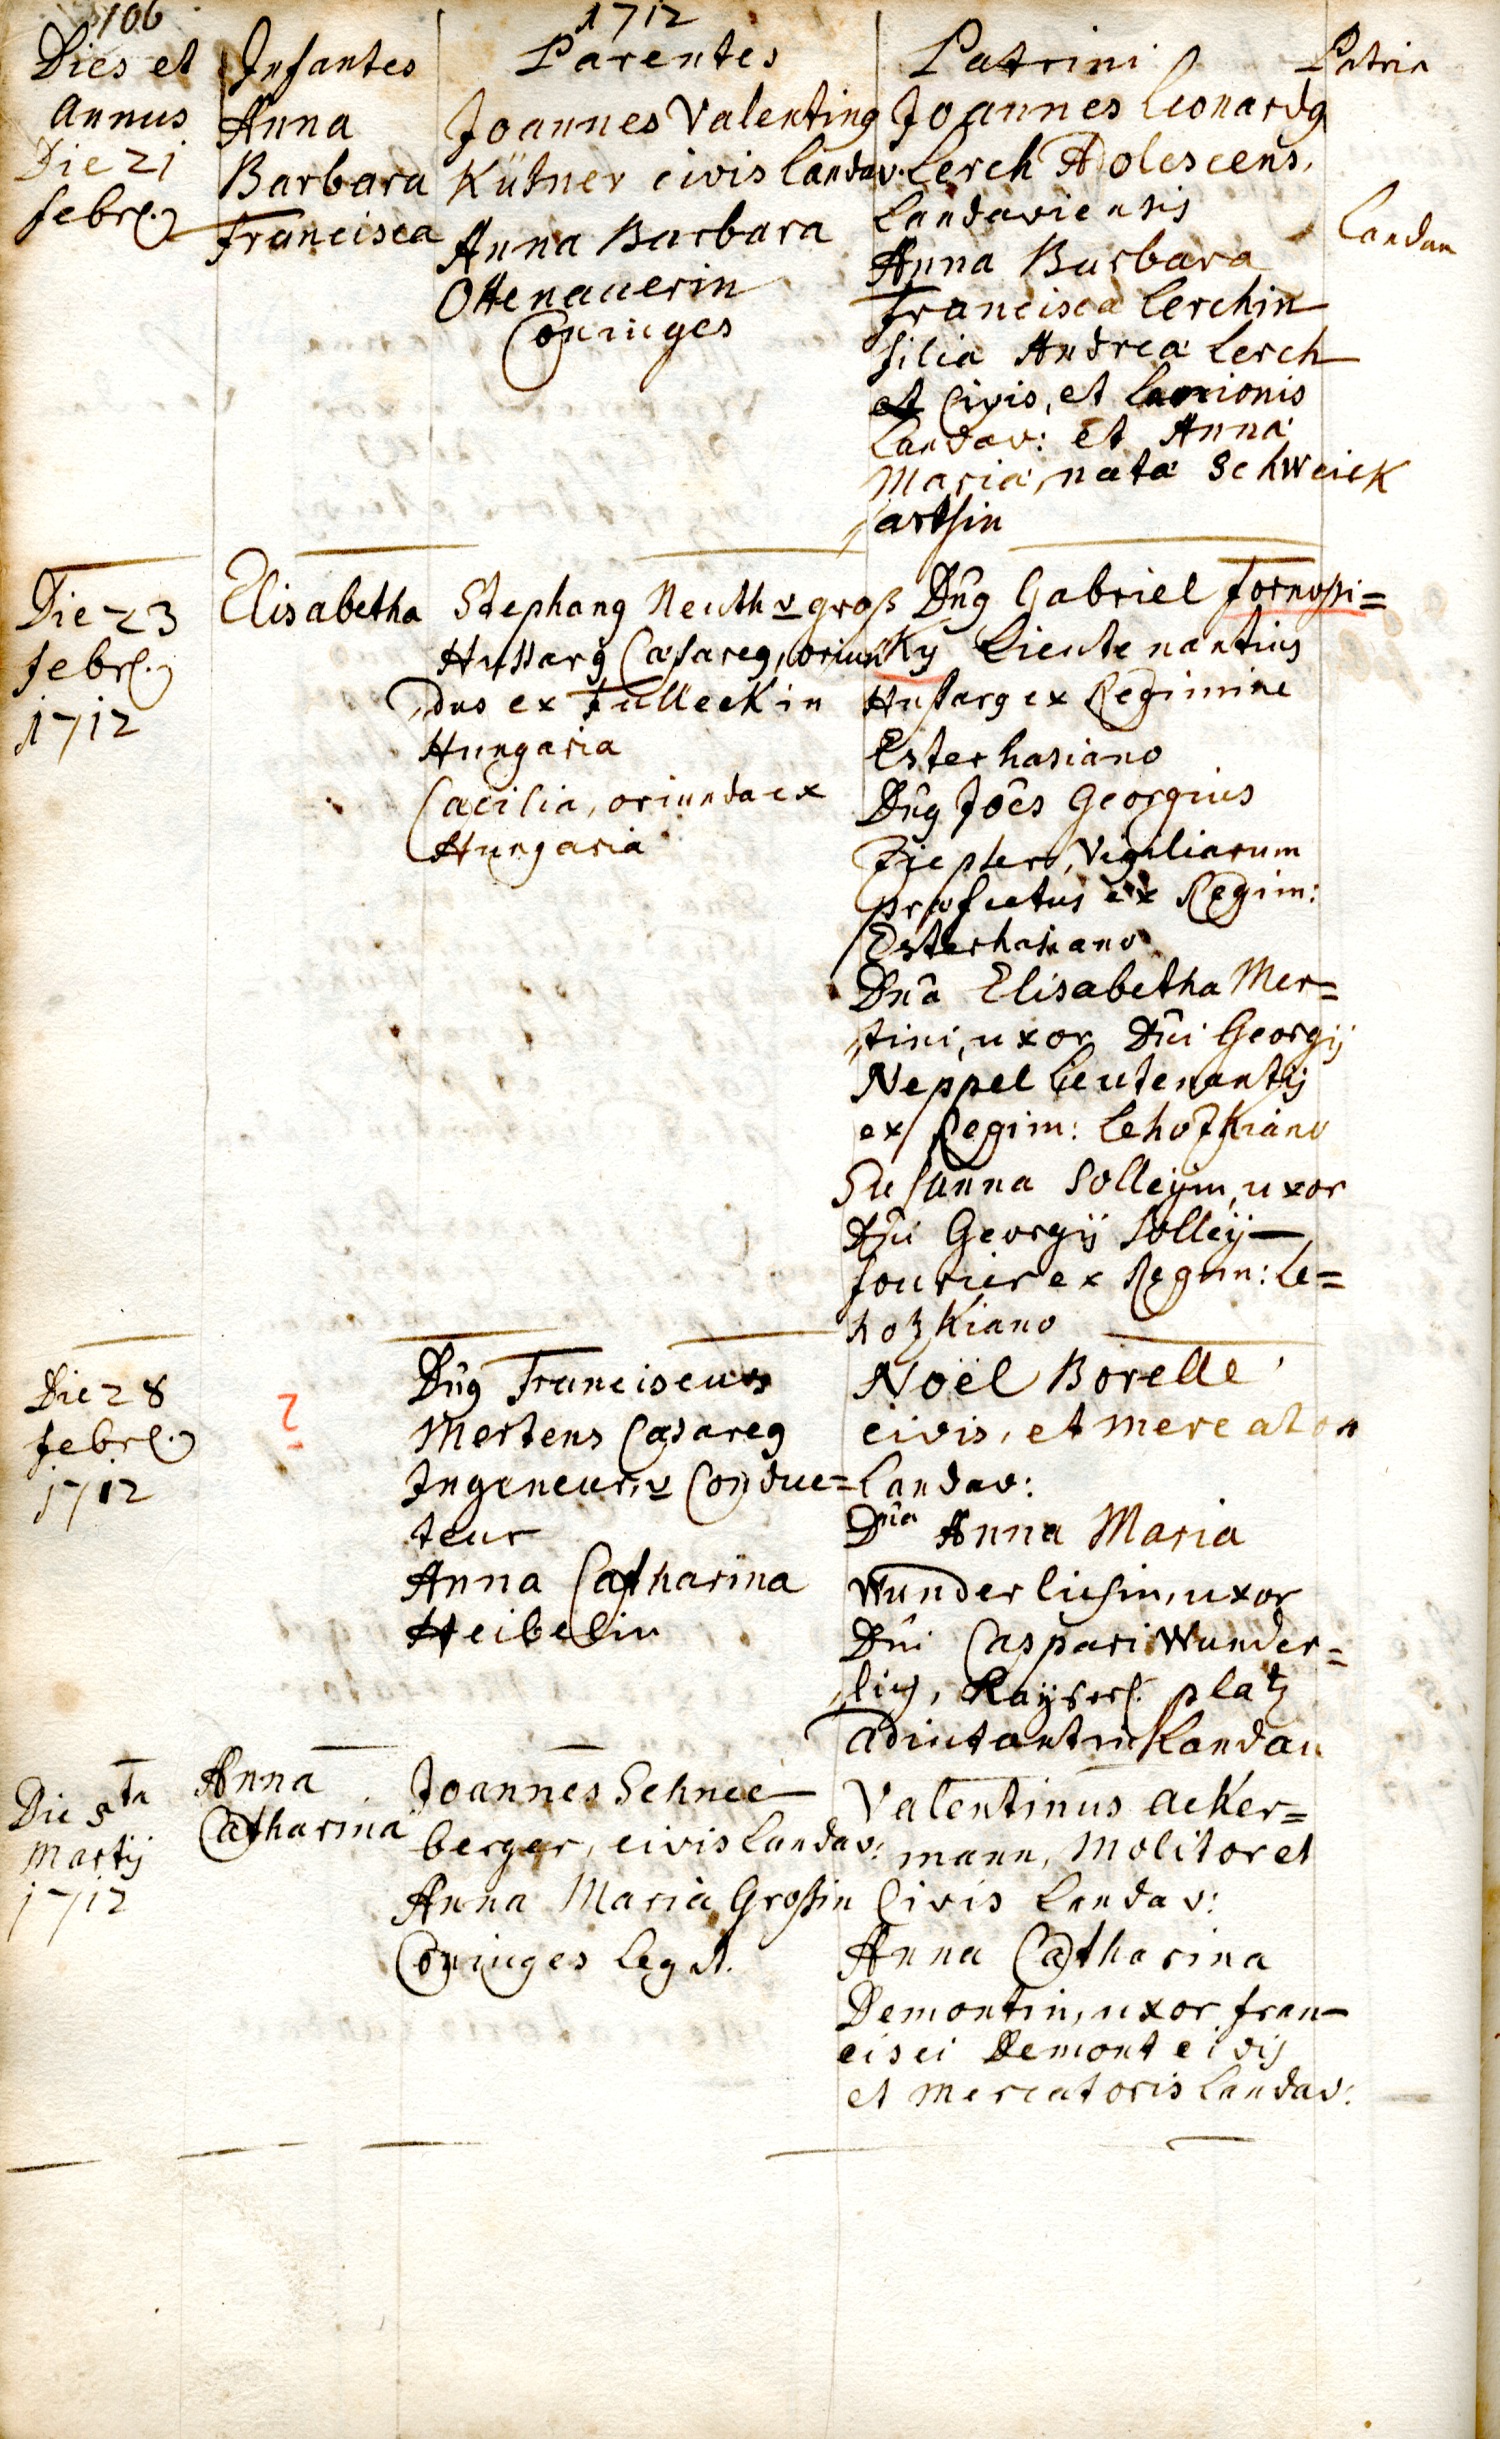 106
1712
Dies et Annus
Infantes
Parentes
Patrini
Patria
Die 21
febr.
Anna
Barbara
Francisca
Joannes Valentinq
Kütner civis Landav.
Anna Barbara
Ottenauerin
Coniuges
Joannes Leonardq
Lerch Adolescens,
Landaviensis
Anna Barbara
Francisca Lerchin
filia Andreæ Lerch
et Civis, et Lanionis
Landav: et Anna
Maria, nata Schweick
artsin
Landau
Die 23
febr.
1712
Elisabetha
Stephanq Neuth v groß
Hussarq Cæsareq, oriun
dus ex Fulleck in
Hungaria
Cæcilia, oriunda ex
Hungaria
Dnq Gabriel fornoßi=
Ky Lieutenantius
Hussarq ex Regimine
Esterhasiano
Dnq Joes Georgius
Ziepser, Vigiliarum
præfectus ex Regim:
Esterhasiano
Dna Elisabetha Mer=
tini, uxor Dni Georgij
Neppel Lieutenantij
ex Regim: Lehozkiano
Susanna Solleijin, uxor
Dni Georgij Solleij
fourier ex Regim: Le=
hozkiano
Die 28
febr.
1712
?
Dnq Franciscus
Mertens Cæsareq
Ingeneur, v Conduc=
teur
Anna Catharina
Heibelin
Noël Borellé
civis, et mercator
Landav:
Dna Anna Maria
Wunderlichin, uxor
Dni Caspari Wunder=
lich, Kayserl. platz
adiutant in Landau
Die 5ta
Martij
1712
Anna
Catharina
Joannes Schnee
berger, civis Landav:
Anna Maria Großin
Coniuges legit.
Valentinus Acker=
mann, Molitor et
Civis Landav:
Anna Catharina
Demontin, uxor fran
cisci Demont civis
et Mercatoris Landav: